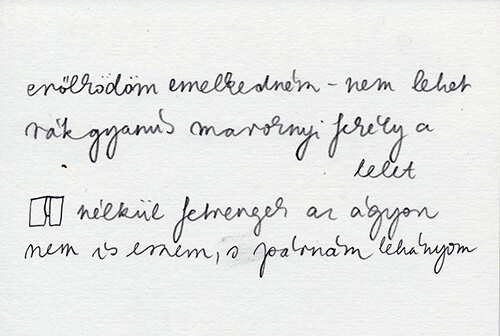 erőlködöm emelkedném – nem lehet
rákgyanús maroknyi fekély a
lelet
nélkül fetrengek az ágyon
nem is eszem, s párnám lehányom